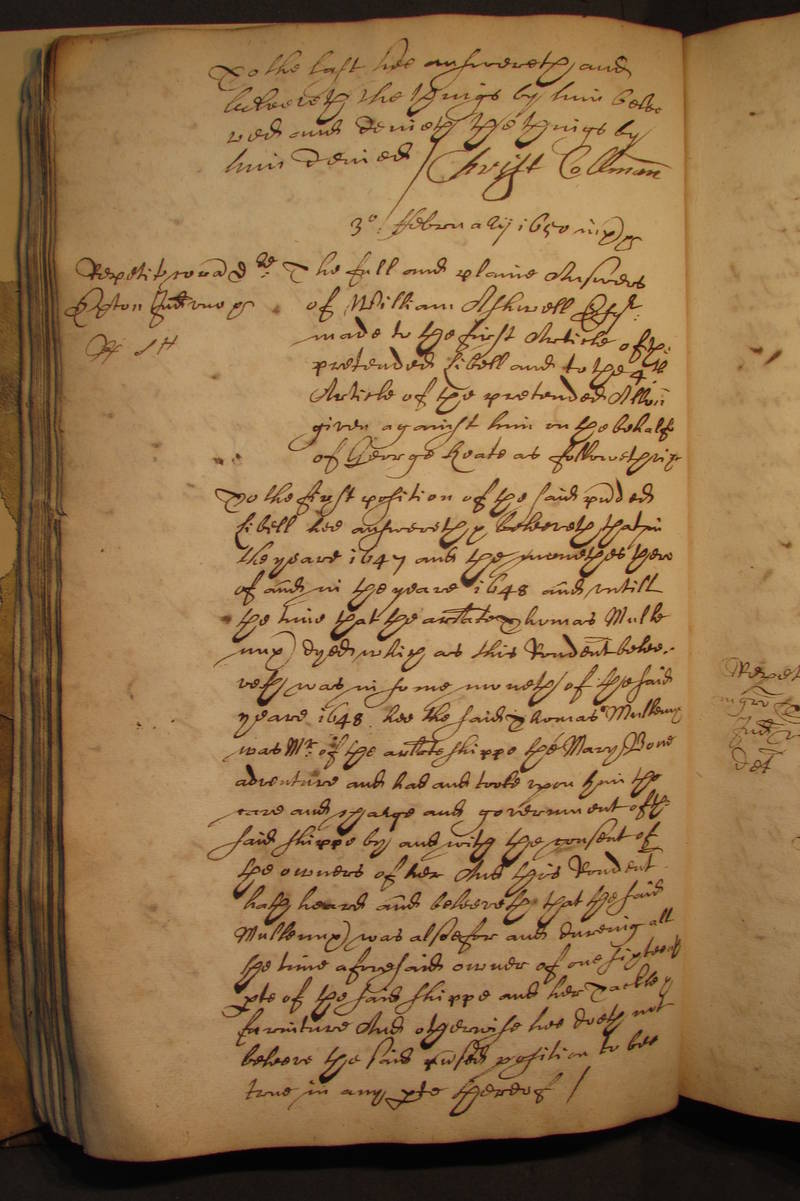 To the last hee answereth, and
beleeveth the things by him belee
ved and denieth the things by
him denied / Christ Collman
3º. ffebruary 1650
Repetit
The full and plaine Answers
of William Ashwell
made to the first Article of the
pretended Libell and to the 4th
Article of the pretended Allon
given against him on the behalfe
of George Keate as followeth vizt
To the first position of the said pnded
Libell hee answereth & beleeveth, that in
the yeare 1647 and the monethes there
of and in the yeare 1648 and untill
the time that the arlate Thomas Mulle
nux) dyed which as this Rondent belee-
veth, was in some moneth of the said
yeare 1648 hee the said Thomas Mullenux
was Mr. of the arlate shippe the Mary Bone
adventure and had and tooke upon him the
care and charge and government of the
said shippe by and with the consent of
the owners of her And this Rondent
hath heard and beleeveth that the said
Mullenux) was alsoe for and dureing all
the time aforesaid owner of one sixteenth
pte of the said shippe and her Tackle &
furniture And otherwise hee doeth not
beleeve the said position to bee
true in any pte thereof /
Repet